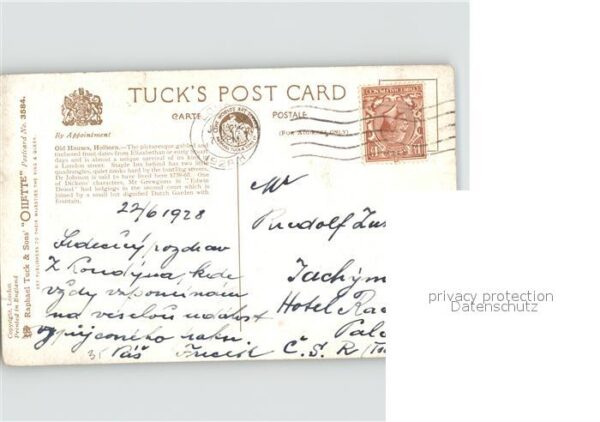 TUCK'S POST CARD
CARTE POSTALE
(For Address ONLY)
By Appointment
Old Houses, Holborn.—The picturesque gabled and
timbered front dates from Elizabethan or early Stuart
days and is almost a unique survival of its kind in
a London street. Staple Inn behind has two little
quadrangles, quiet nooks hard by the bustling streets.
Dr Johnson is said to have lived here 1759-60. One
of Dickens' characters, Mr Grewgious in "Edwin
Drood" had lodgings in the second court which is
joined by a small but dignified Dutch Garden with
fountain.
Copyright, London
Printed in England
Raphael Tuck & Sons' "OILETTE" Postcard No. 3584.
ART PUBLISHERS TO THEIR MAJESTIES THE KING & QUEEN
22/6 1928
Srdečný pozdrav
z Londýna, kde
vždy vzpomínám
na veselou událost
vypůjčeného raku.
Váš
Mr
Rudolf
Jáchym
Hotel Rad
Pala
Č. S. R
privacy protection
Datenschutz